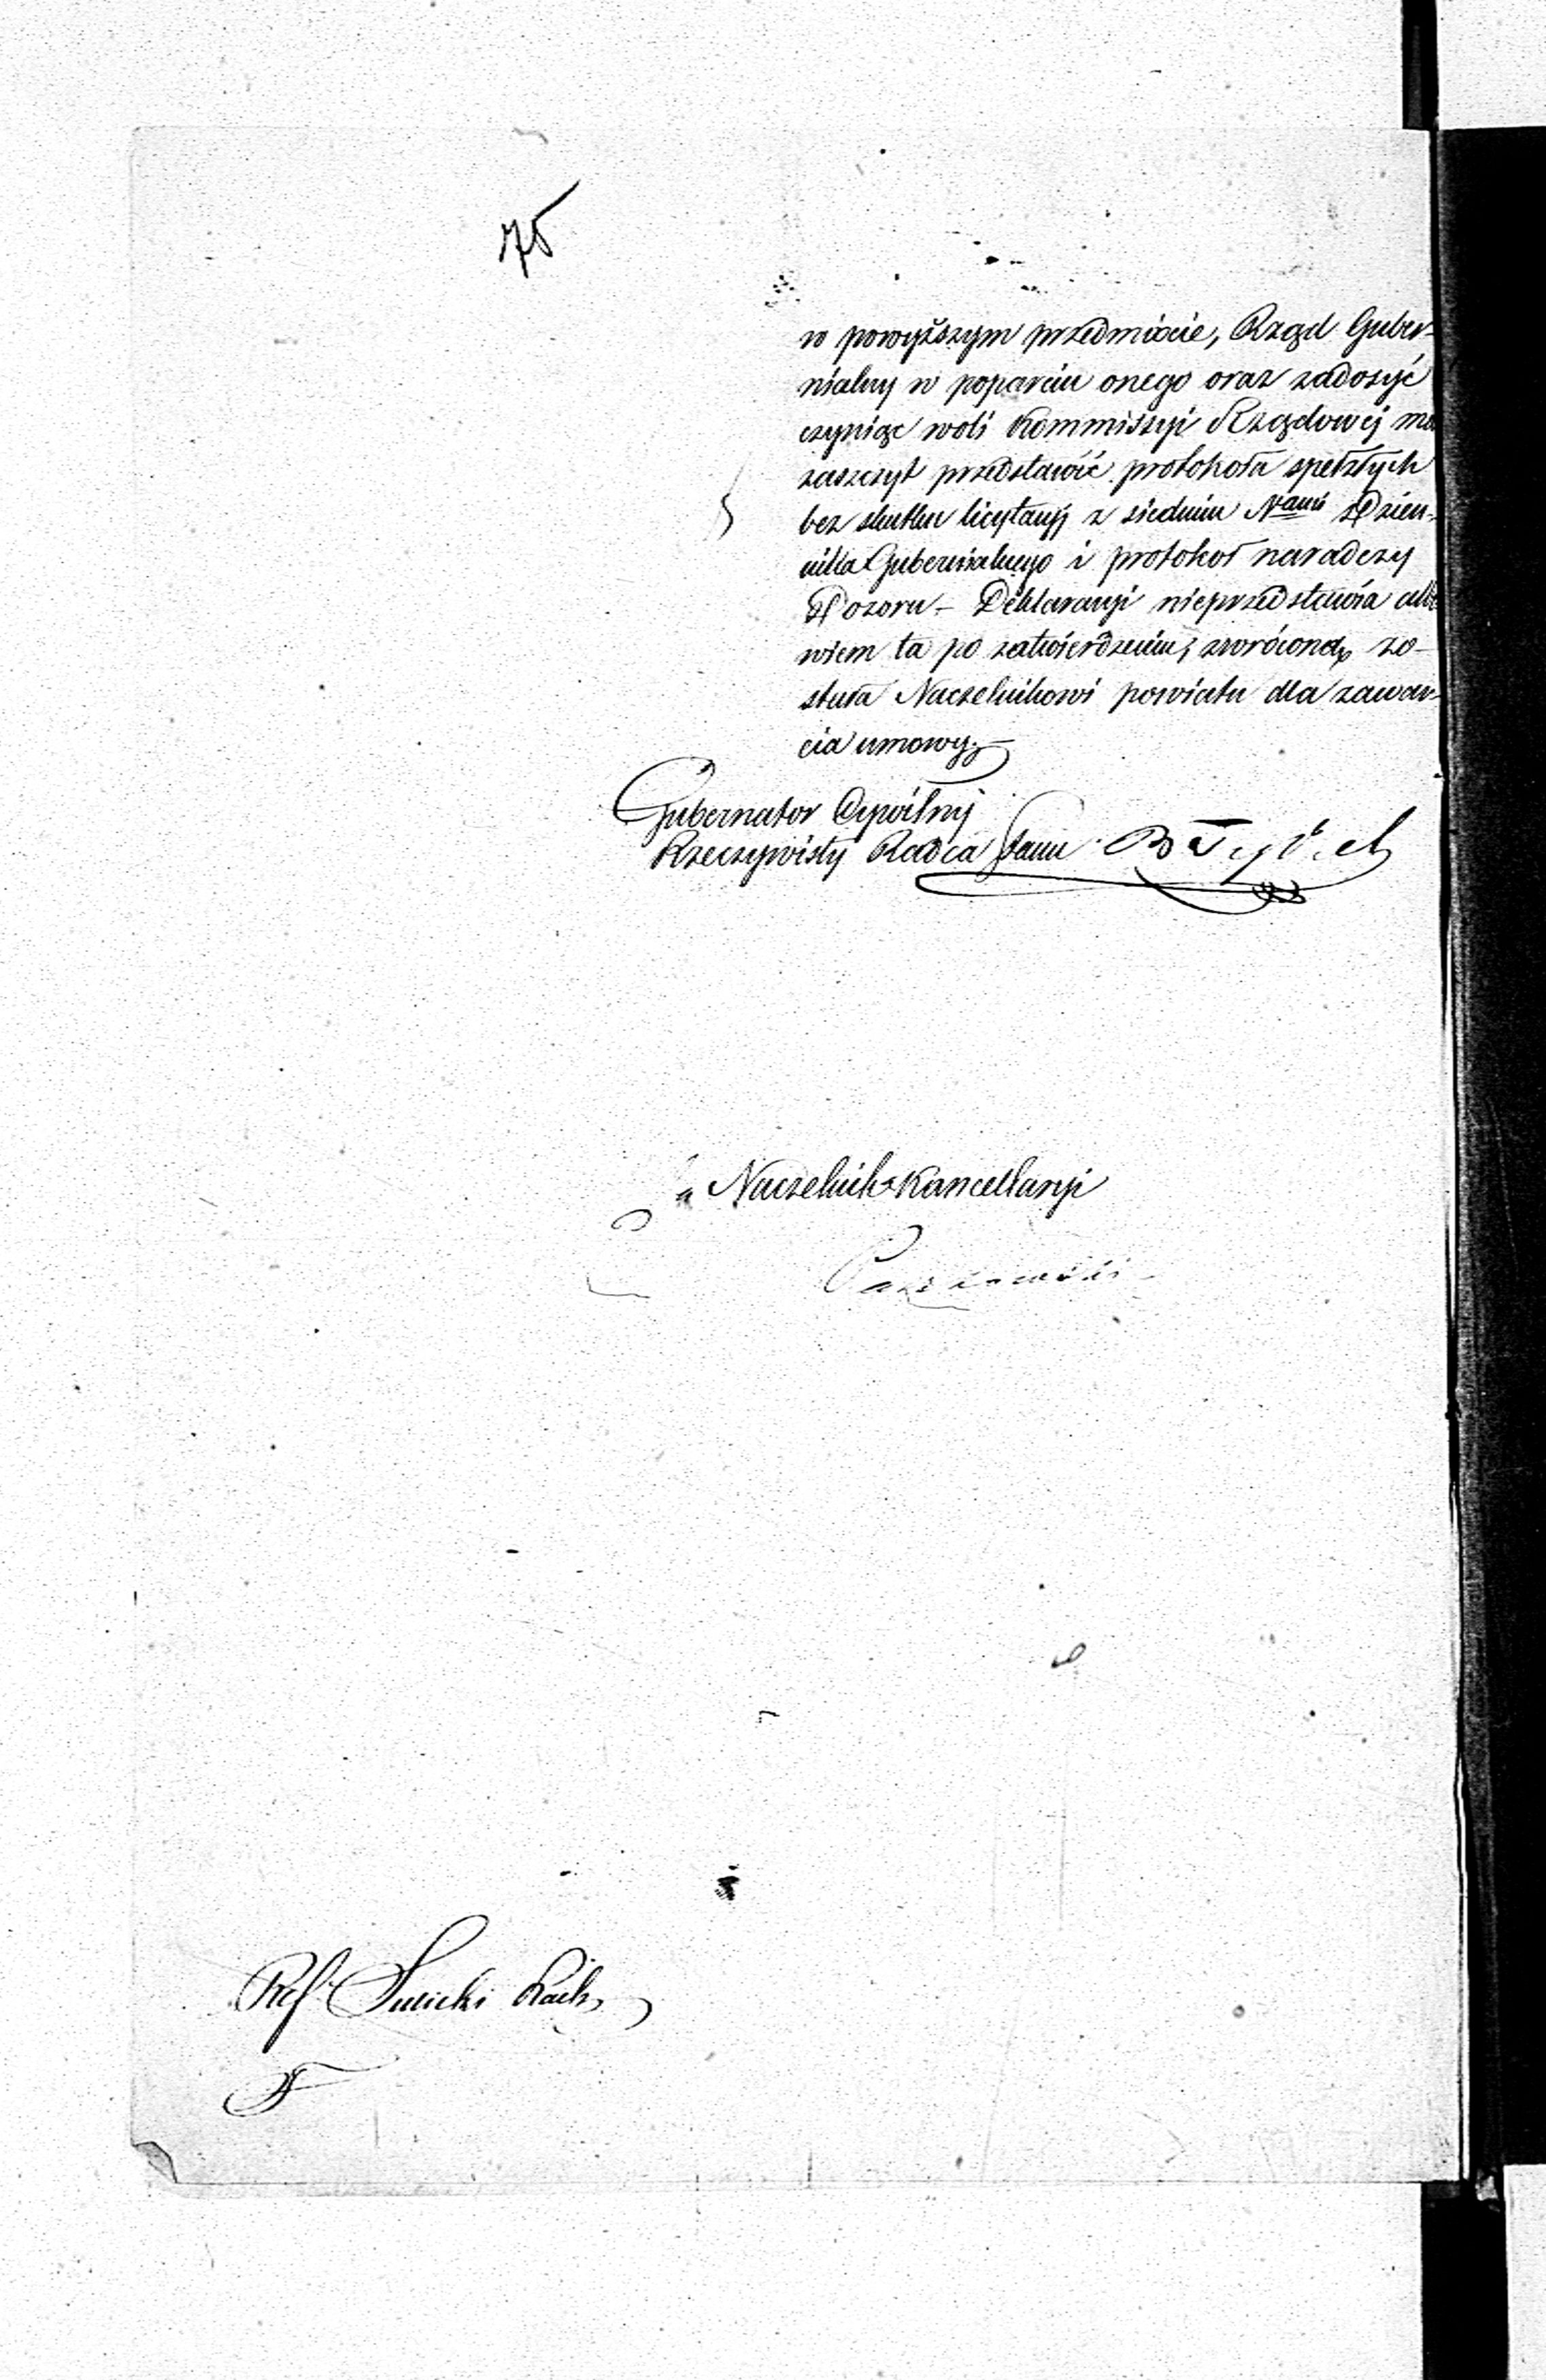 75
w powyższym przedmiocie, Rząd Guber-
nialny w poparciu onego oraz zadosyć
czyniąc woli Kommissyi Rządowej ma
zaszczyt przedstawić protokoła spełzłych
bez skutku licytacyj z siedmiu Nami Dzien-
nika Gubernialnego i protokoł naradczy
Dozoru - Deklaracyi nieprzedstawia albo
wiem ta po zatwierdzeniu, zwróconą zo-
stała Naczelnikowi powiatu dla zawar-
cia umowy.-
Gubernator Cywilny
Rzeczywisty Radca Stanu
Naczelnik Kancellaryi
Ref.